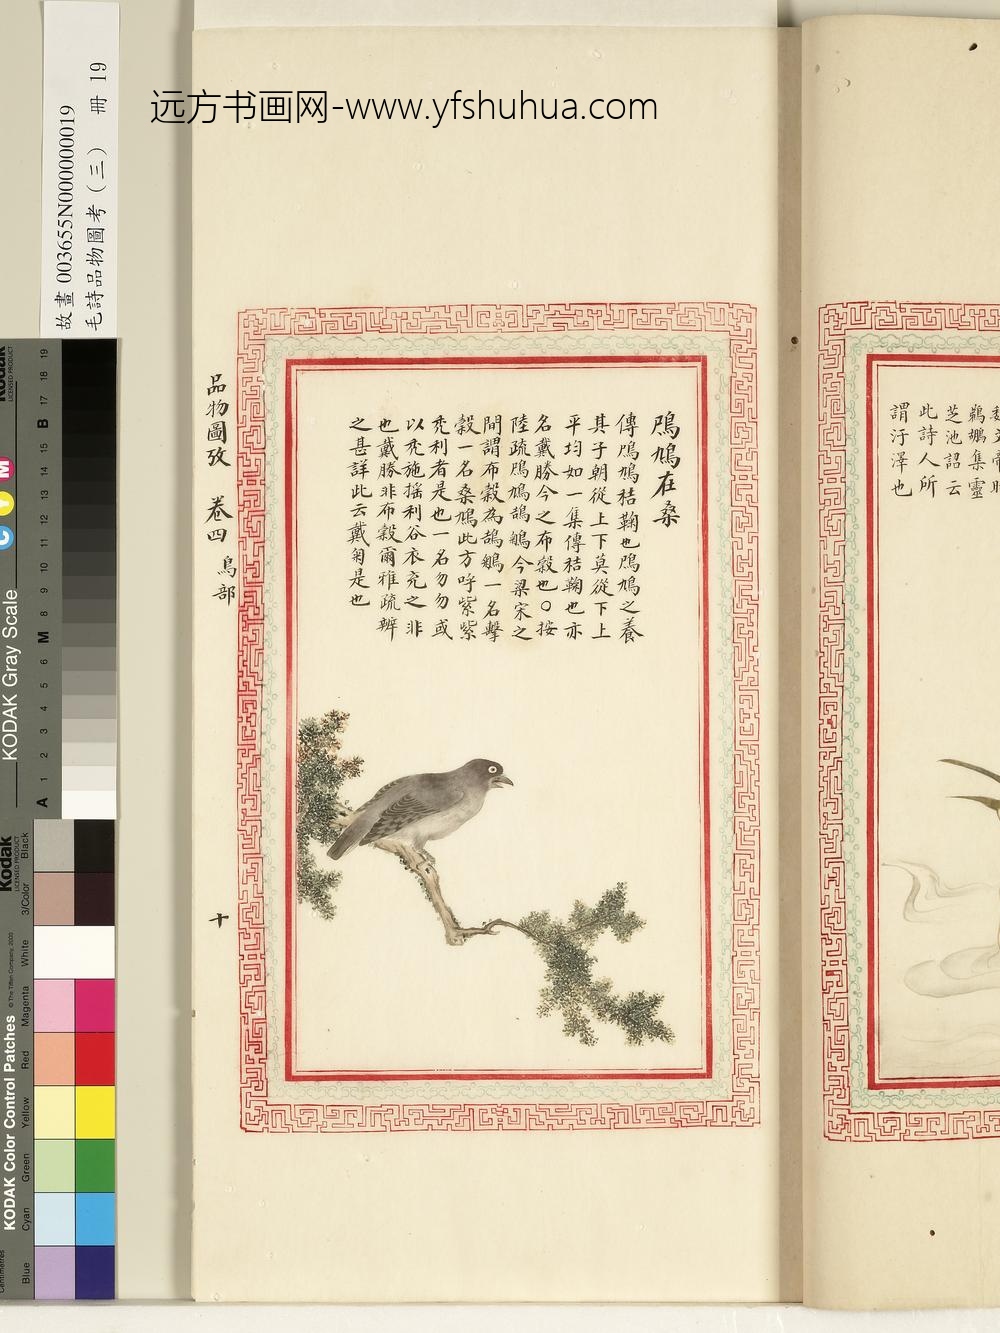 远方书画网-www.yfshuhua.com
故畫 003655N000000019
毛詩品物圖考（三） 冊 19
鳲鳩在桑
傳鳲鳩秸鞠也鳲鳩之養
其子朝從上下莫從下上
平均如一集傳秸鞠也亦
名戴勝今之布穀也○按
陸疏鳲鳩鵠鵴今梁宋之
間謂布穀為鵠鵴一名擊
穀一名桑鳩此方呼紫紫
禿利者是也一名勿勿或
以禿施搖利谷衣充之非
也戴勝非布穀爾雅疏辨
之甚詳此云戴勝是也
品物圖攷 卷四 鳥部
十
鵜鶘集靈
芝池詔云
此詩人所
謂汙澤也
Kodak
LICENSED PRODUCT
KODAK Gray Scale
C Y M
A 1 2 3 4 5 6 M 8 9 10 11 12 13 14 15 B 17 18 19
Kodak
LICENSED PRODUCT
KODAK Color Control Patches
© The Tiffen Company, 2000
Blue Cyan Green Yellow Red Magenta White 3/Color Black
Centimetres